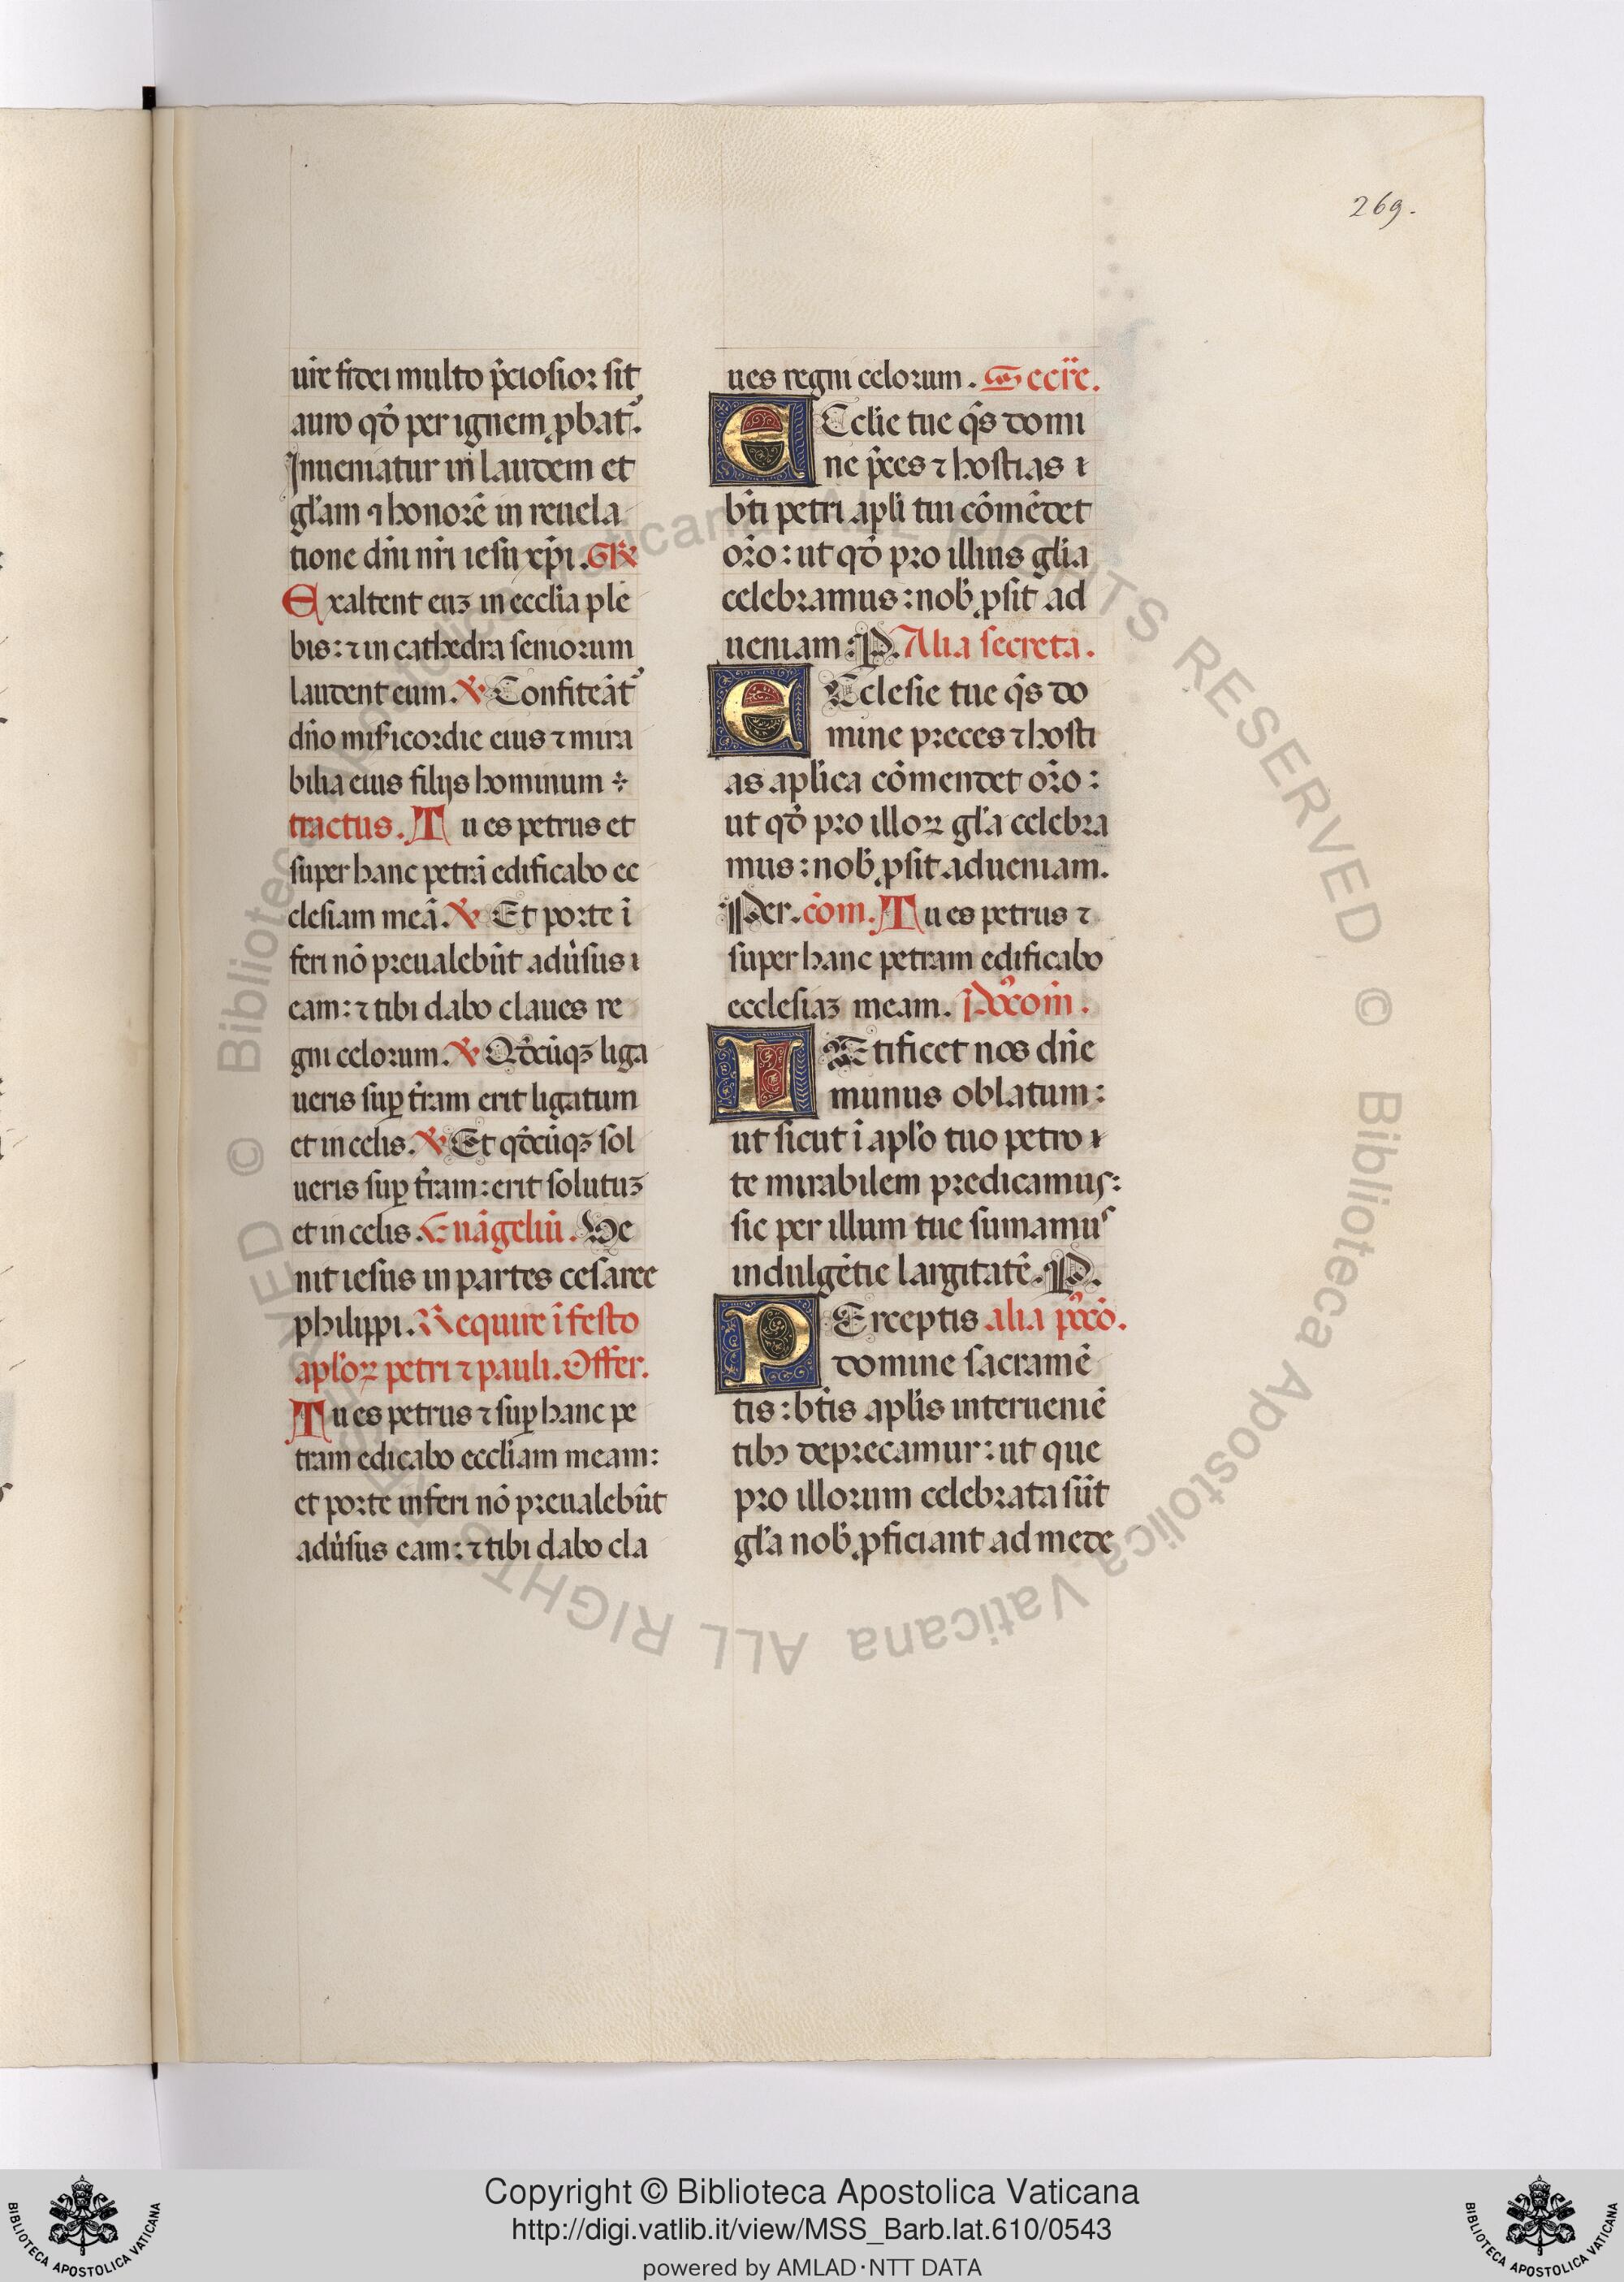 269.
ur̄e fidei multo p̄ciosior sit
auro qđ per ignem ꝓbat᷒.
Inueniatur in laudem et
gl̄am ⁊ honorē in reuela
tione dn̄i nr̄i iesu xp̄i. Gꝶ
Exaltent euꝫ in ecclīa ple
bis: ⁊ in cathedra seniorum
laudent eum. ℣ Confiteāt᷒
dn̄o mīsicordie eius ⁊ mira
bilia eius filijs hominum
tractus. Tu es petrus et
super hanc petrā edificabo ec
clesiam meā. ℣ Et porte ī
feri nō preualebūt adūsus ı
eam: ⁊ tibi dabo claues re
gni celorum. ℣ Qđcūqꝫ liga
ueris suꝑ t̄ram erit ligatum
et in celis. ℣ Et qđcūqꝫ sol
ueris suꝑ t̄ram: erit solutuꝫ
et in celis. Euāgeliū. Ve
nit iesus in partes cesaree
philippi. Require ī festo
apl̄oꝝ petri ⁊ pauli. Offer.
Tu es petrus ⁊ suꝑ hanc pe
tram edicabo eccl̄iam meam:
et porte inferi nō preualebūt
adūsus eam: ⁊ tibi dabo cla
ues regni celorum. Secr̄e.
ECcl̄ie tue q̄s domi
ne p̄ces ⁊ hostias ı
bt̄i petri apl̄i tui cōmēdet
or̄o: ut qđ pro illius gl̄ia
celebramus: nob̄ ꝓsit ad
ueniam: P. Alia secreta.
ECclesie tue q̄s do
mine preces ⁊ hosti
as apl̄ica cōmendet or̄o:
ut qđ pro illoꝝ gl̄a celebra
mus: nob̄ ꝓsit ad ueniam.
Per. cōm. Tu es petrus ⁊
super hanc petram edificabo
ecclesiaꝫ meam. P᷒ocom̄.
LEtificet nos dn̄e
munus oblatum:
ut sicut ī apl̄o tuo petro ı
te mirabilem predicamus:
sic per illum tue sumamus
indulgētie largitatē. P.
PErceptis alia p᷒ocō.
domine sacramē
tis: bt̄is apl̄is interueniē
tibꝰ deprecamur: ut que
pro illorum celebrata sūt
gl̄a nob̄ ꝓficiant ad mede
© Biblioteca Apostolica Vaticana ALL RIGHTS RESERVED © Biblioteca Apostolica Vaticana ALL RIGHTS RESERVED
Copyright © Biblioteca Apostolica Vaticana
http://digi.vatlib.it/view/MSS_Barb.lat.610/0543
powered by AMLAD・NTT DATA
BIBLIOTECA APOSTOLICA VATICANA
BIBLIOTECA APOSTOLICA VATICANA